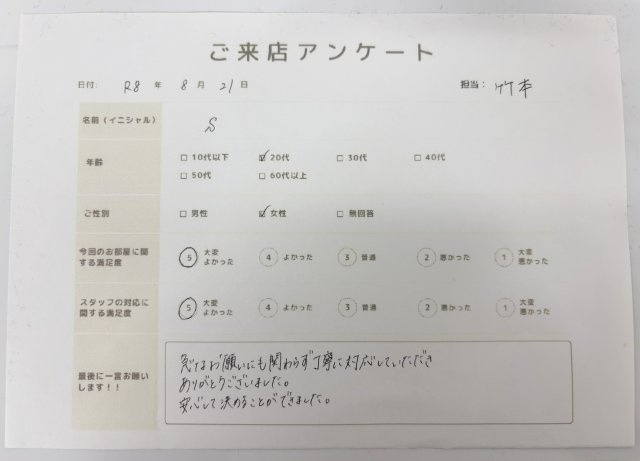 ご来店アンケート
日付: R8 年 8 月 21 日 担当: 竹本
名前(イニシャル) S
年齢 □ 10代以下 ☑ 20代 □ 30代 □ 40代
□ 50代 □ 60代以上
ご性別 □ 男性 ☑ 女性 □ 無回答
今回のお部屋に関
する満足度
5 大変
よかった
4 よかった
3 普通
2 悪かった
1 大変
悪かった
スタッフの対応に
関する満足度
5 大変
よかった
4 よかった
3 普通
2 悪かった
1 大変
悪かった
最後に一言お願い
します!!
急なお願いにも関わらず丁寧に対応していただき
ありがとうございました。
安心して決めることができました。